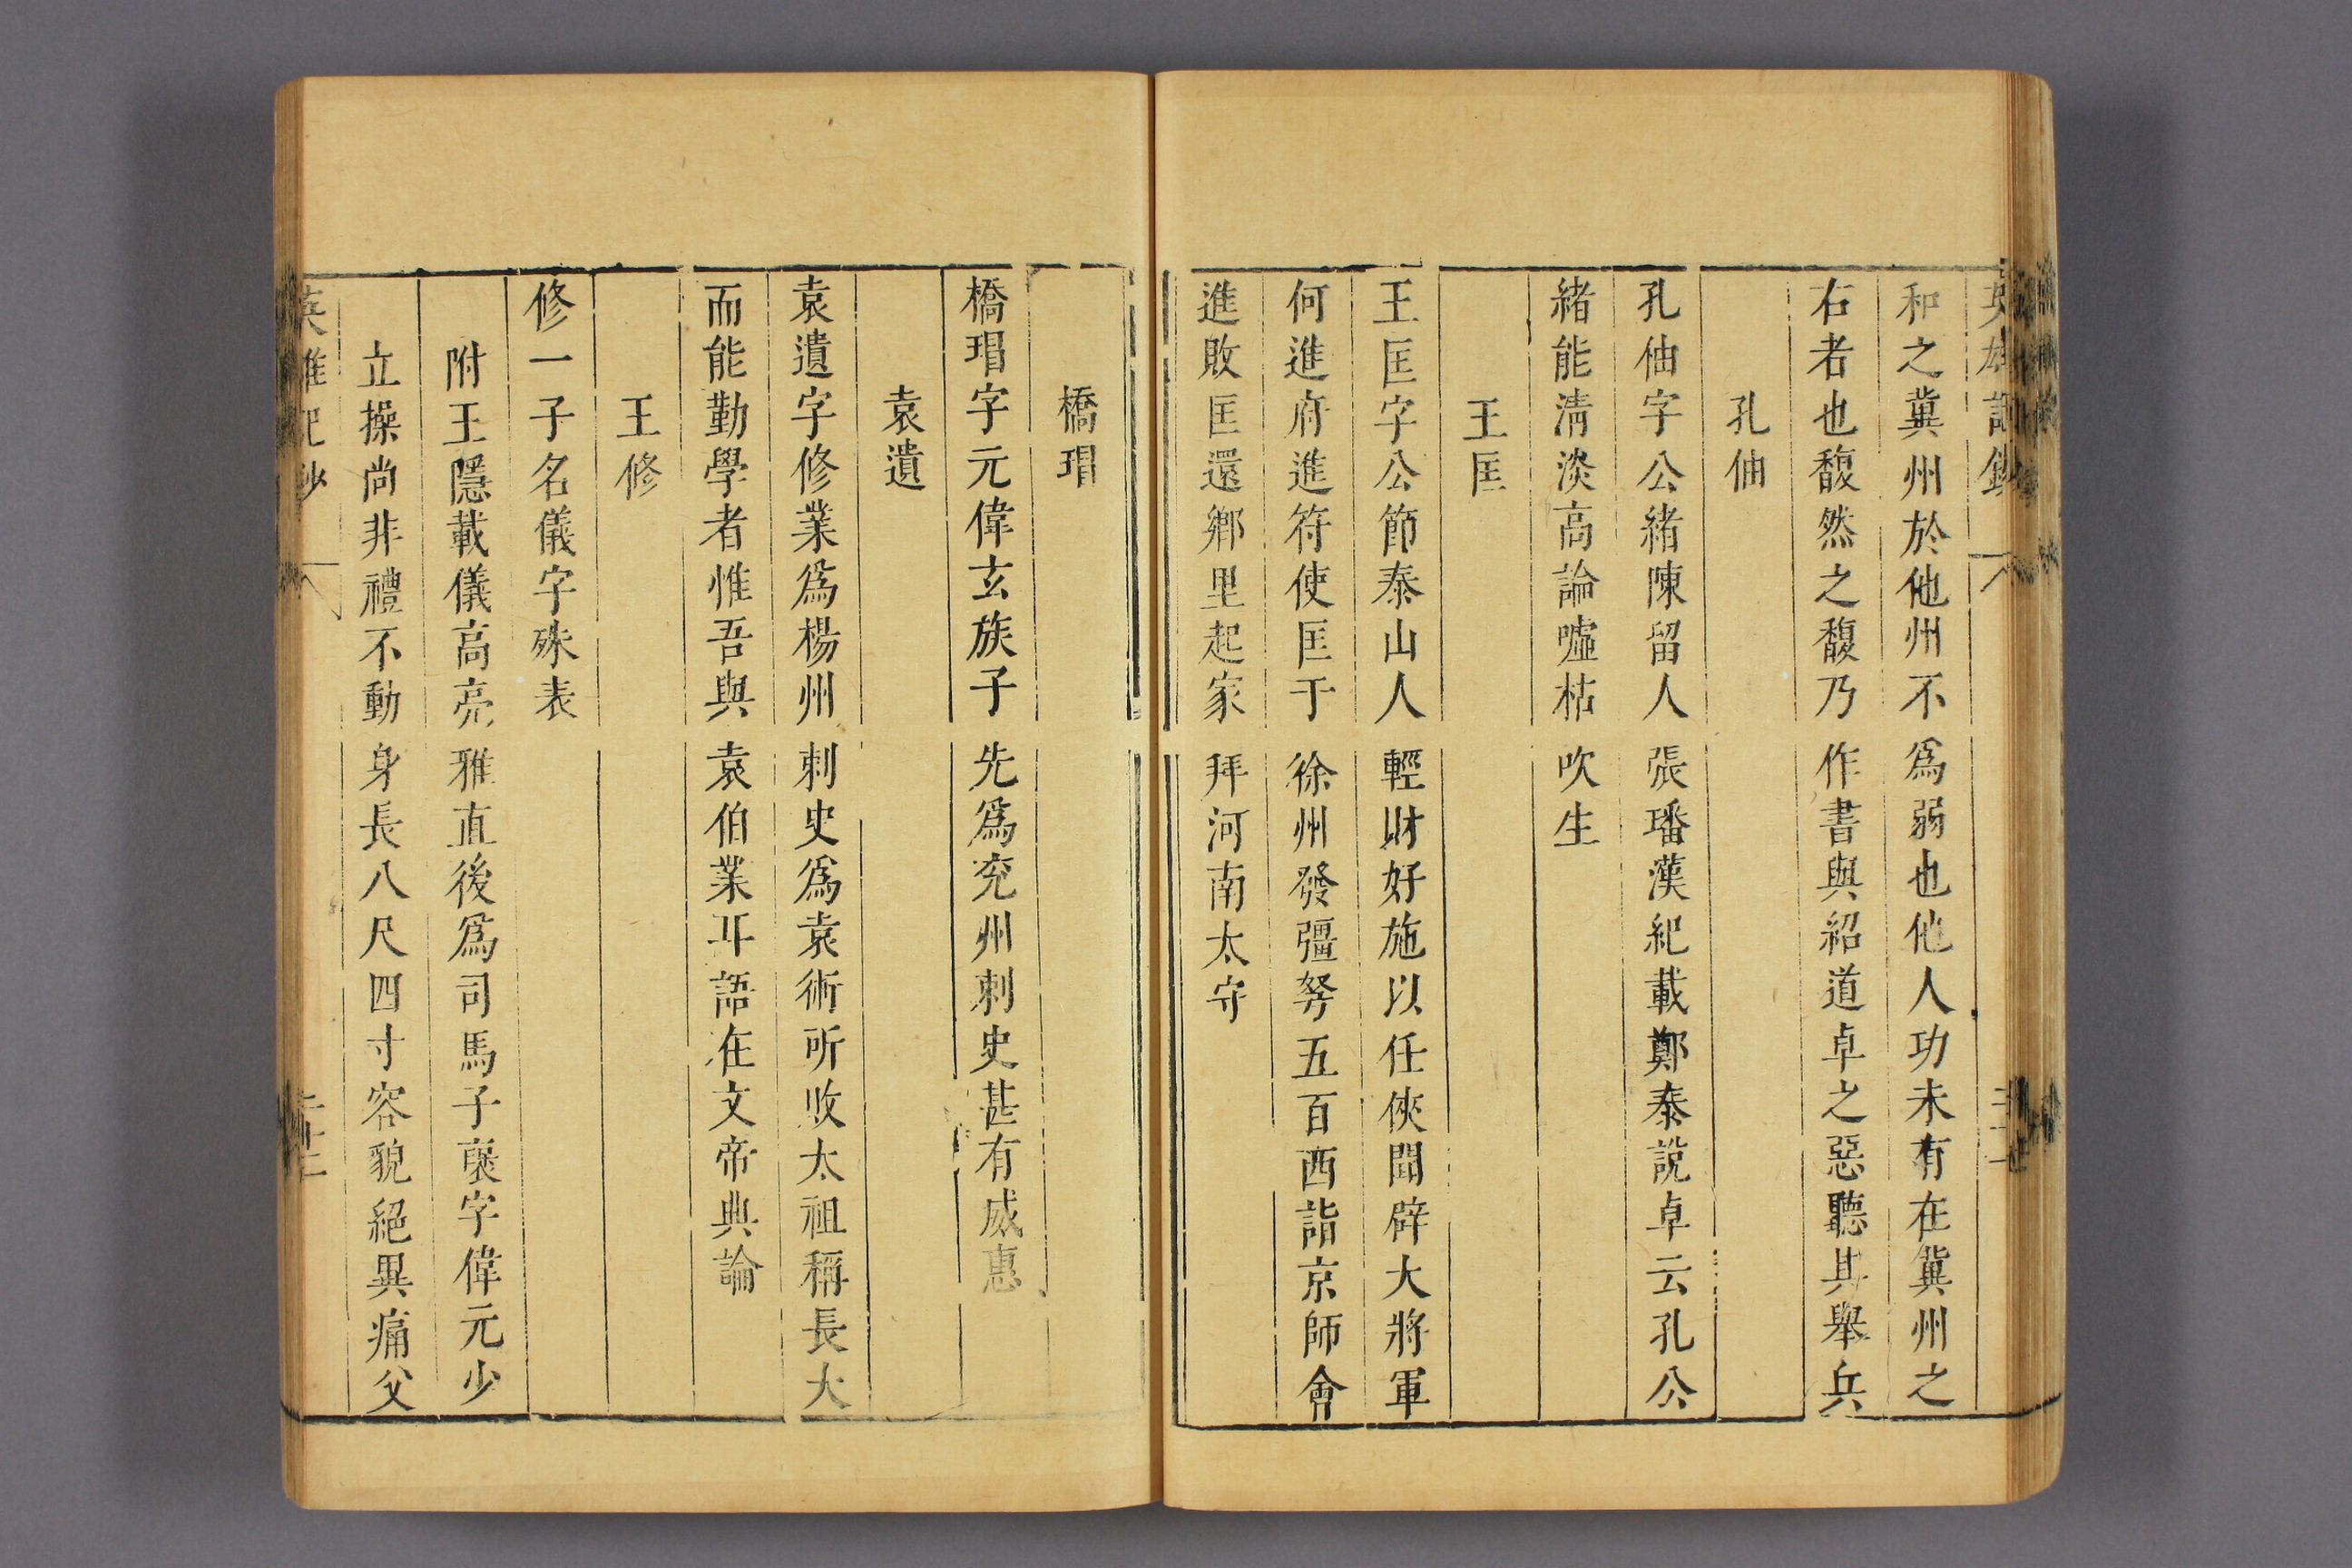 和之冀州於他州不為弱也他人功未有在冀州之
右者也馥然之馥乃作書與紹道卓之惡聽其舉兵
孔伷
孔伷字公緒陳留人張璠漢紀載鄭泰說卓云孔公
緒能淸淡高論噓枯吹生
王匡
王匡字公節泰山人輕財好施以任俠聞辟大將軍
何進府進符使匡于徐州發彊弩五百西詣京師會
進敗匡還鄉里起家拜河南太守
橋瑁
橋瑁字元偉玄族子先為兖州刺史甚有威惠
袁遺
袁遺字修業為楊州刺史為袁術所敗太祖稱長大
而能勤學者惟吾與袁伯業耳語在文帝典論
王修
修一子名儀字殊表
附王隱載儀高亮雅直後為司馬子裒字偉元少
立操尚非禮不動身長八尺四寸容貌絕異痛父